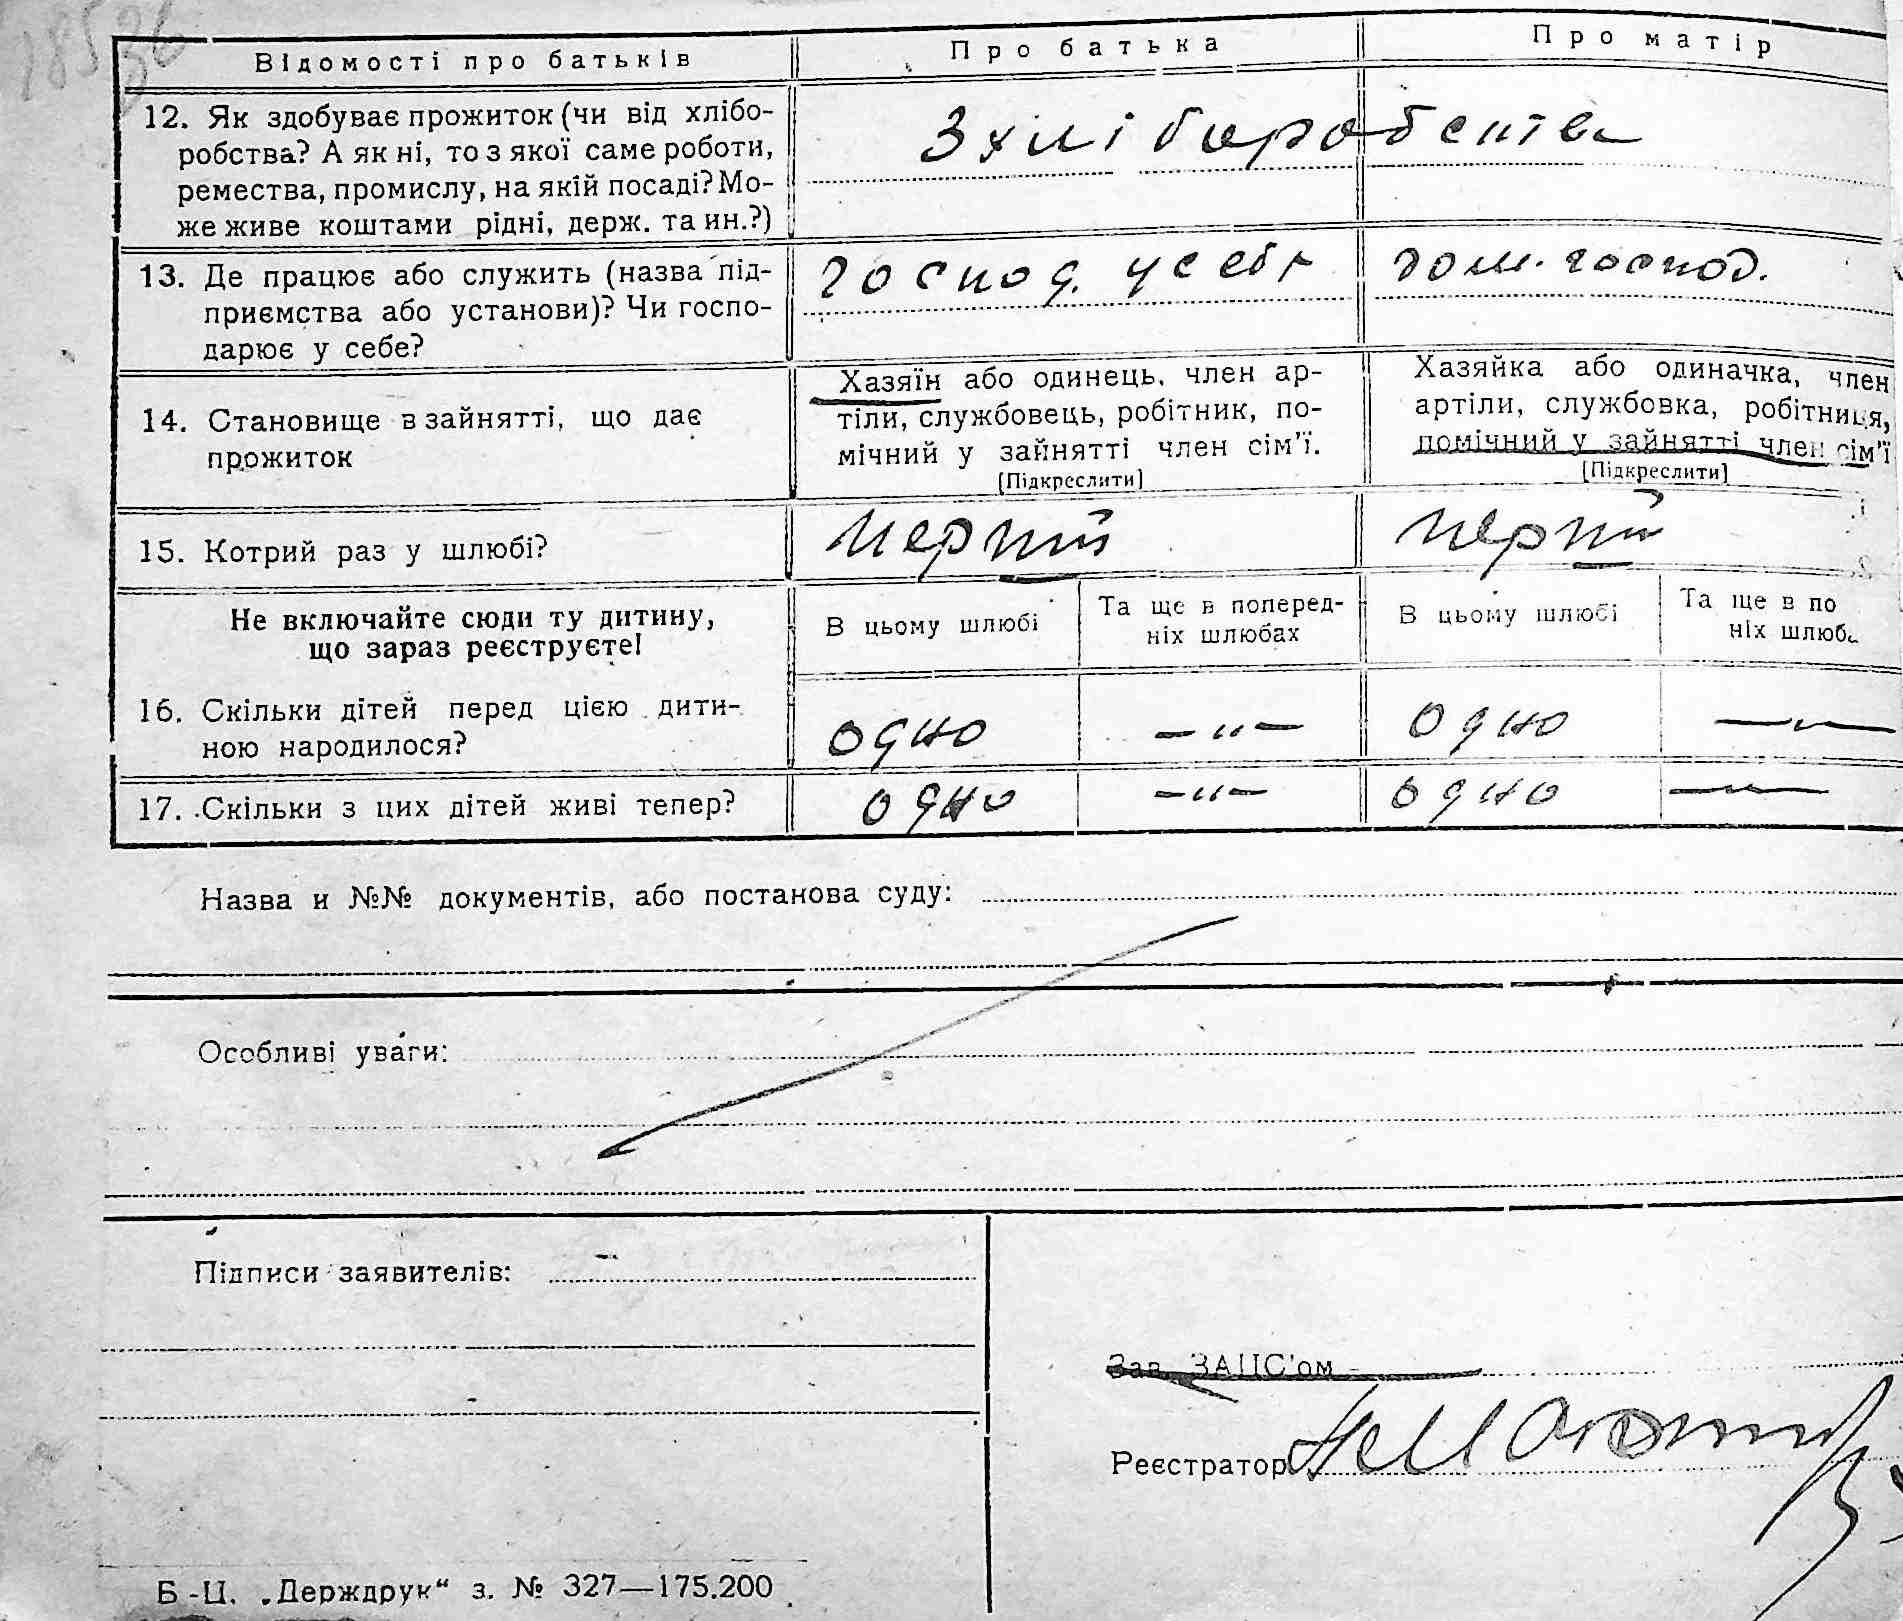 18536
Відомості про батьків
Про батька
Про матір
12. Як здобуває прожиток (чи від хлібо-
робства? А як ні, то з якої саме роботи,
ремества, промислу, на якій посаді? Мо-
же живе коштами рідні, держ. та ин.?)
З хліборобства
13. Де працює або служить (назва під-
приємства або установи)? Чи госпо-
дарює у себе?
господ. у себе
дом. господ.
14. Становище в зайнятті, що дає
прожиток
Хазяїн або одинець, член ар-
тіли, службовець, робітник, по-
мічний у зайнятті член сім'ї.
[Підкреслити]
Хазяйка або одиначка, член
артіли, службовка, робітниця,
помічний у зайнятті член сім'ї
[Підкреслити]
15. Котрий раз у шлюбі?
перший
перший
Не включайте сюди ту дитину,
що зараз реєструєте!
В цьому шлюбі
Та ще в поперед-
ніх шлюбах
В цьому шлюбі
Та ще в по
ніх шлюба
16. Скільки дітей перед цією дити-
ною народилося?
одно
— „ —
одно
— „ —
17. Скільки з цих дітей живі тепер?
одно
— „ —
одно
— „ —
Назва и №№ документів, або постанова суду:
Особливі уваги:
Підписи заявителів:
Зав. ЗАЦС'ом
Реєстратор
Б-Ц. „Держдрук“ з. № 327—175.200